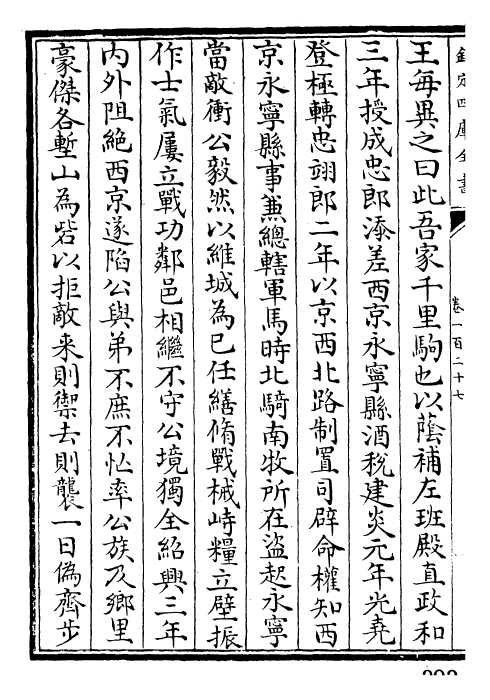 欽定四庫全書
卷一百二十七
王每異之曰此吾家千里駒也以蔭補左班殿直政和
三年授成忠郎添差西京永寧縣酒稅建炎元年光堯
登極轉忠翊郎二年以京西北路制置司辟命權知西
京永寧縣事兼總轄軍馬時北騎南牧所在盜起永寧
當敵衝公毅然以維城為已任繕脩戰械峙糧立壁振
作士氣屢立戰功鄰邑相繼不守公境獨全紹興三年
内外阻絶西京遂陷公與弟不庶不忙率公族及鄉里
豪傑各塹山為砦以拒敵来則禦去則襲一日偽齊步